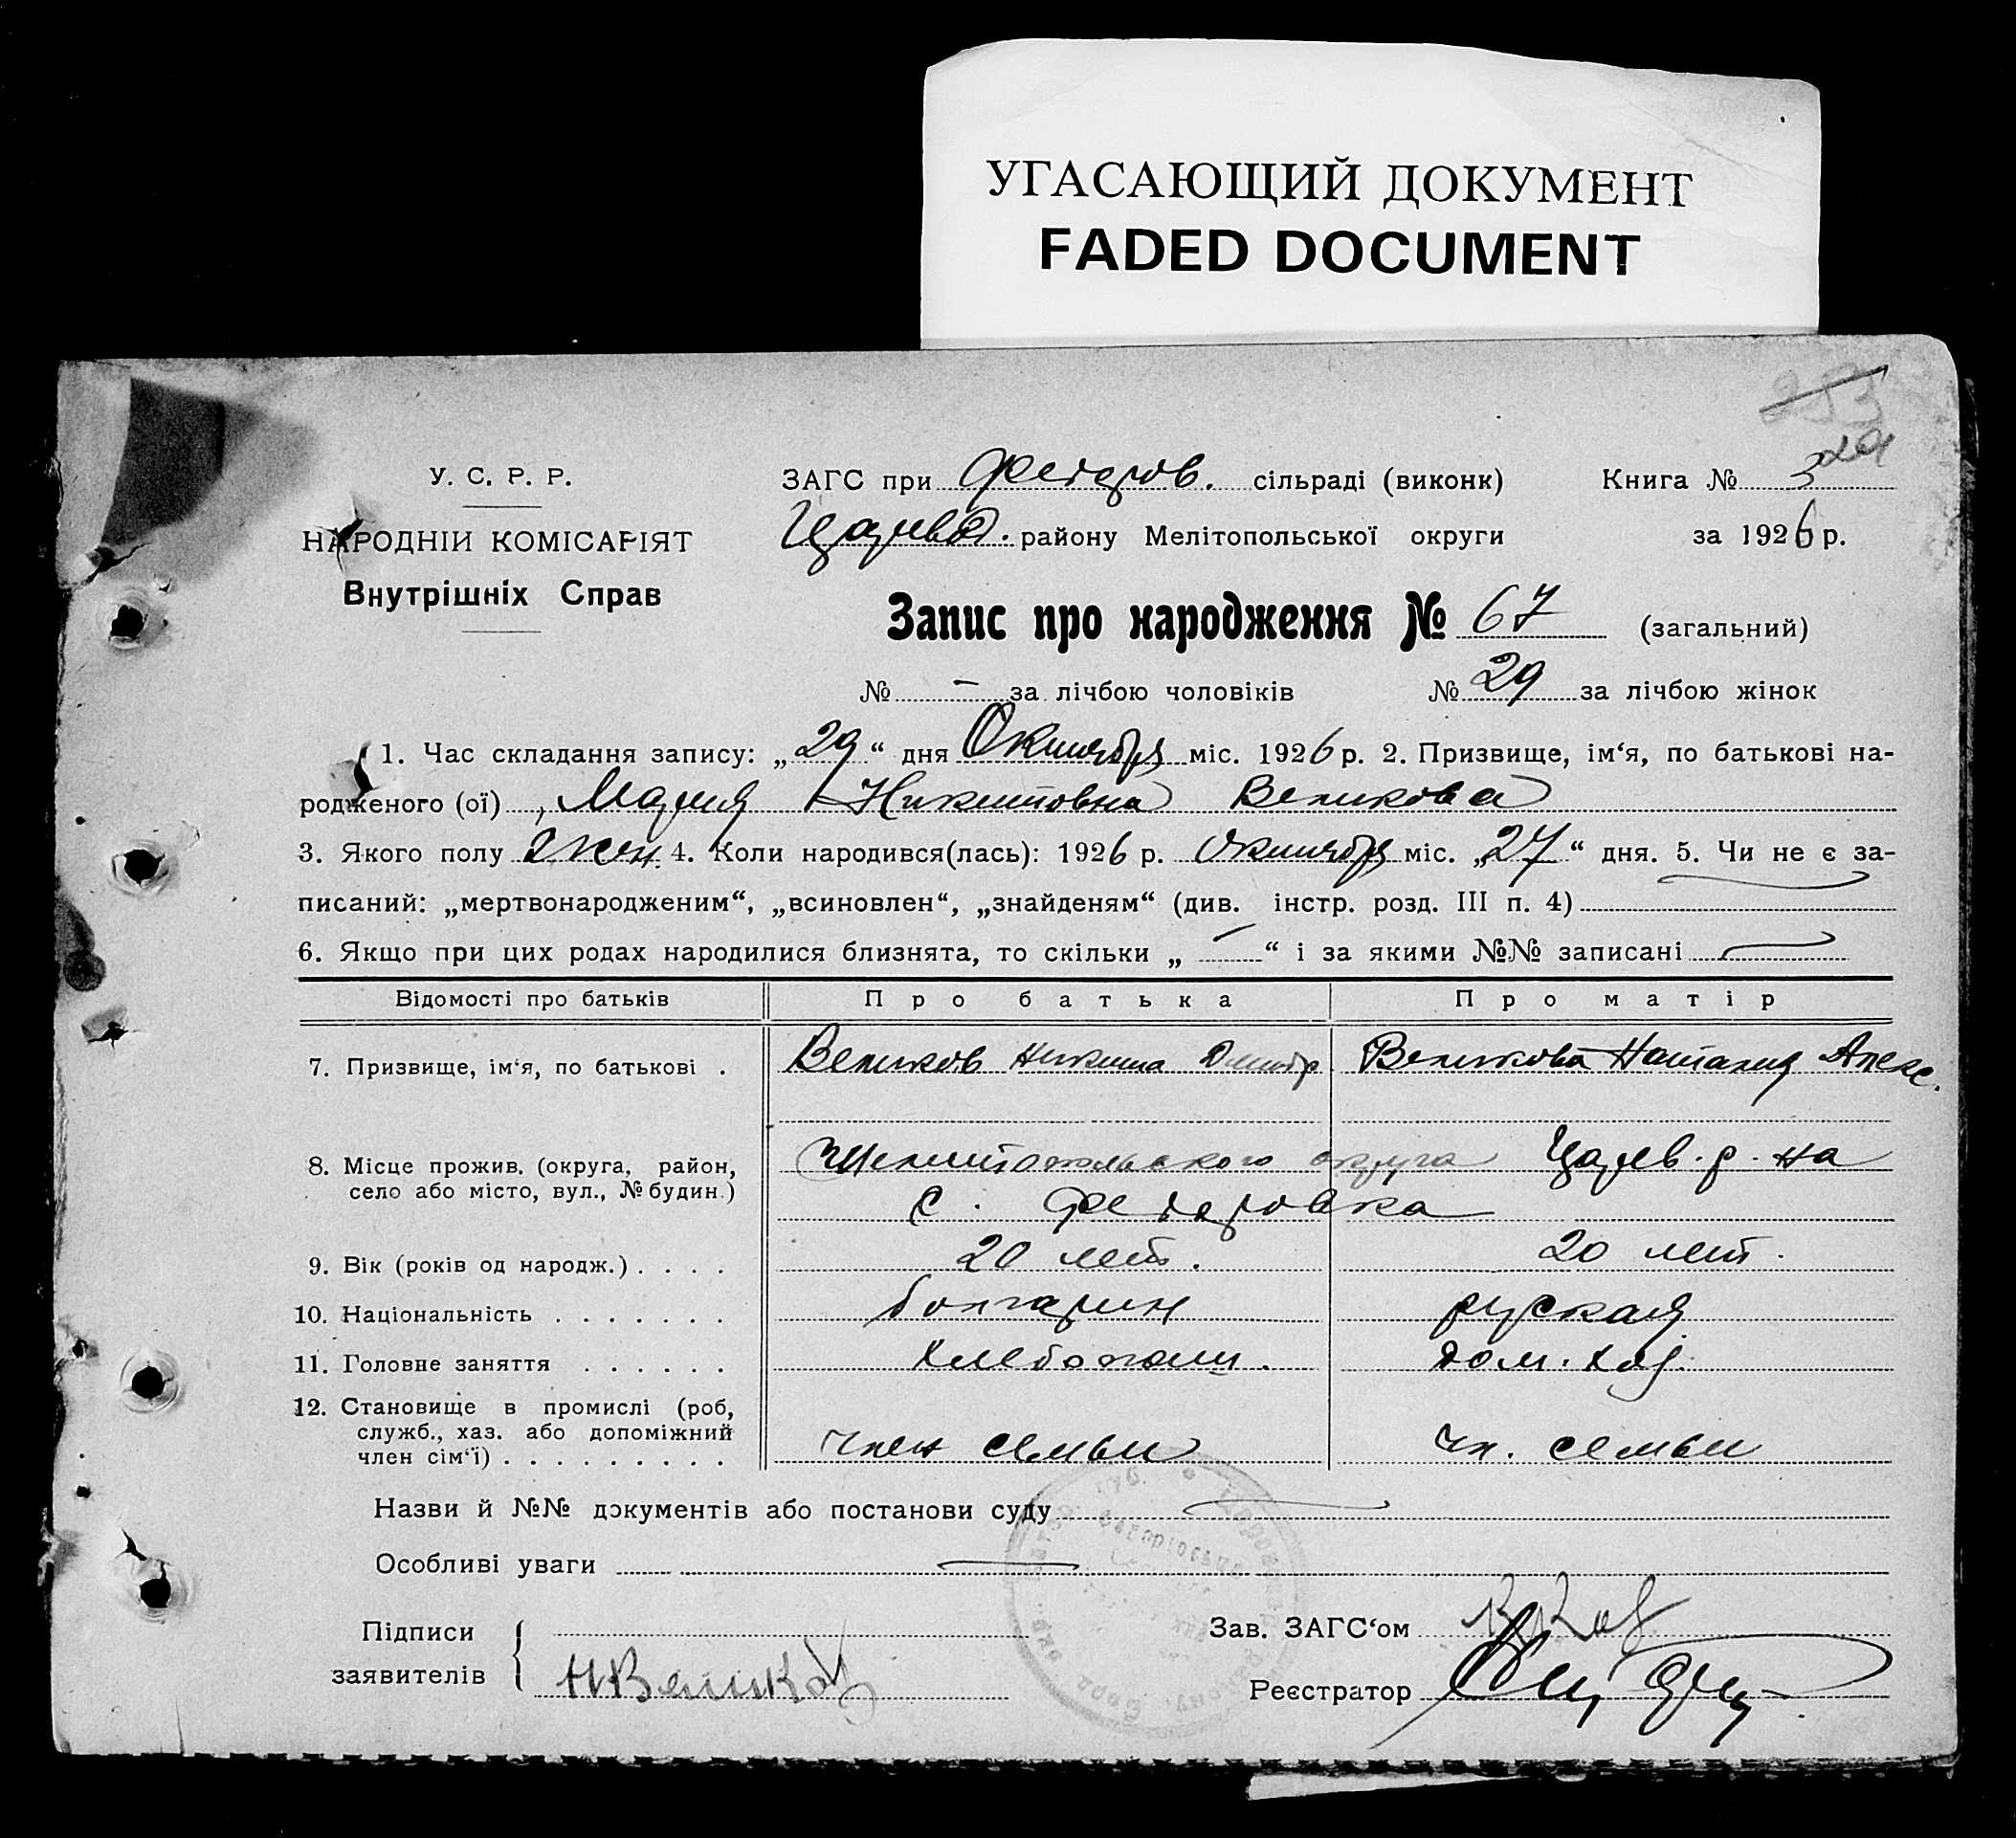 УГАСАЮЩИЙ ДОКУМЕНТ
FADED DOCUMENT
У. С. Р. Р.
НАРОДНІЙ КОМІСАРІЯТ
Внутрішніх Справ
ЗАГС при Федоров. сільраді (виконк) Книга №
Царев. району Мелітопольської округи за 1926 р.
Запис про народження № 67 (загальний)
№ – за лічбою чоловіків № 29 за лічбою жінок
1. Час складання запису: „29“ дня Октября міс. 1926 р. 2. Призвище, ім‘я, по батькові на-
родженого (ої) Мария Никитовна Великова
3. Якого полу жен. 4. Коли народився(лась): 1926 р. Октября міс. „27“ дня. 5. Чи не є за-
писаний: „мертвонародженим“, „всиновлен“, „знайденям“ (див. інстр. розд. III п. 4)
6. Якщо при цих родах народилися близнята, то скільки „ – “ і за якими №№ записані —
Відомості про батьків Про батька Про матір
7. Призвище, ім‘я, по батькові . Великов Никита Дмитр Великова Наталия Алекс.
8. Місце прожив. (округа, район, Мелитопольского округа Царев. р-на
село або місто, вул., № будин.) с. Федоровка
9. Вік (років од народж.) . . . . 20 лет. 20 лет.
10. Національність . . . . . . . болгарин руская
11. Головне заняття . . . . . . хлебопаш. дом. хоз.
12. Становище в промислі (роб,
служб., хаз. або допоміжний
член сім‘ї) . . . . . . . . . член семьи чл. семьи
Назви й №№ документів або постанови суду —
Особливі уваги —
Підписи Зав. ЗАГС‘ом
заявителів Н Великов Реєстратор